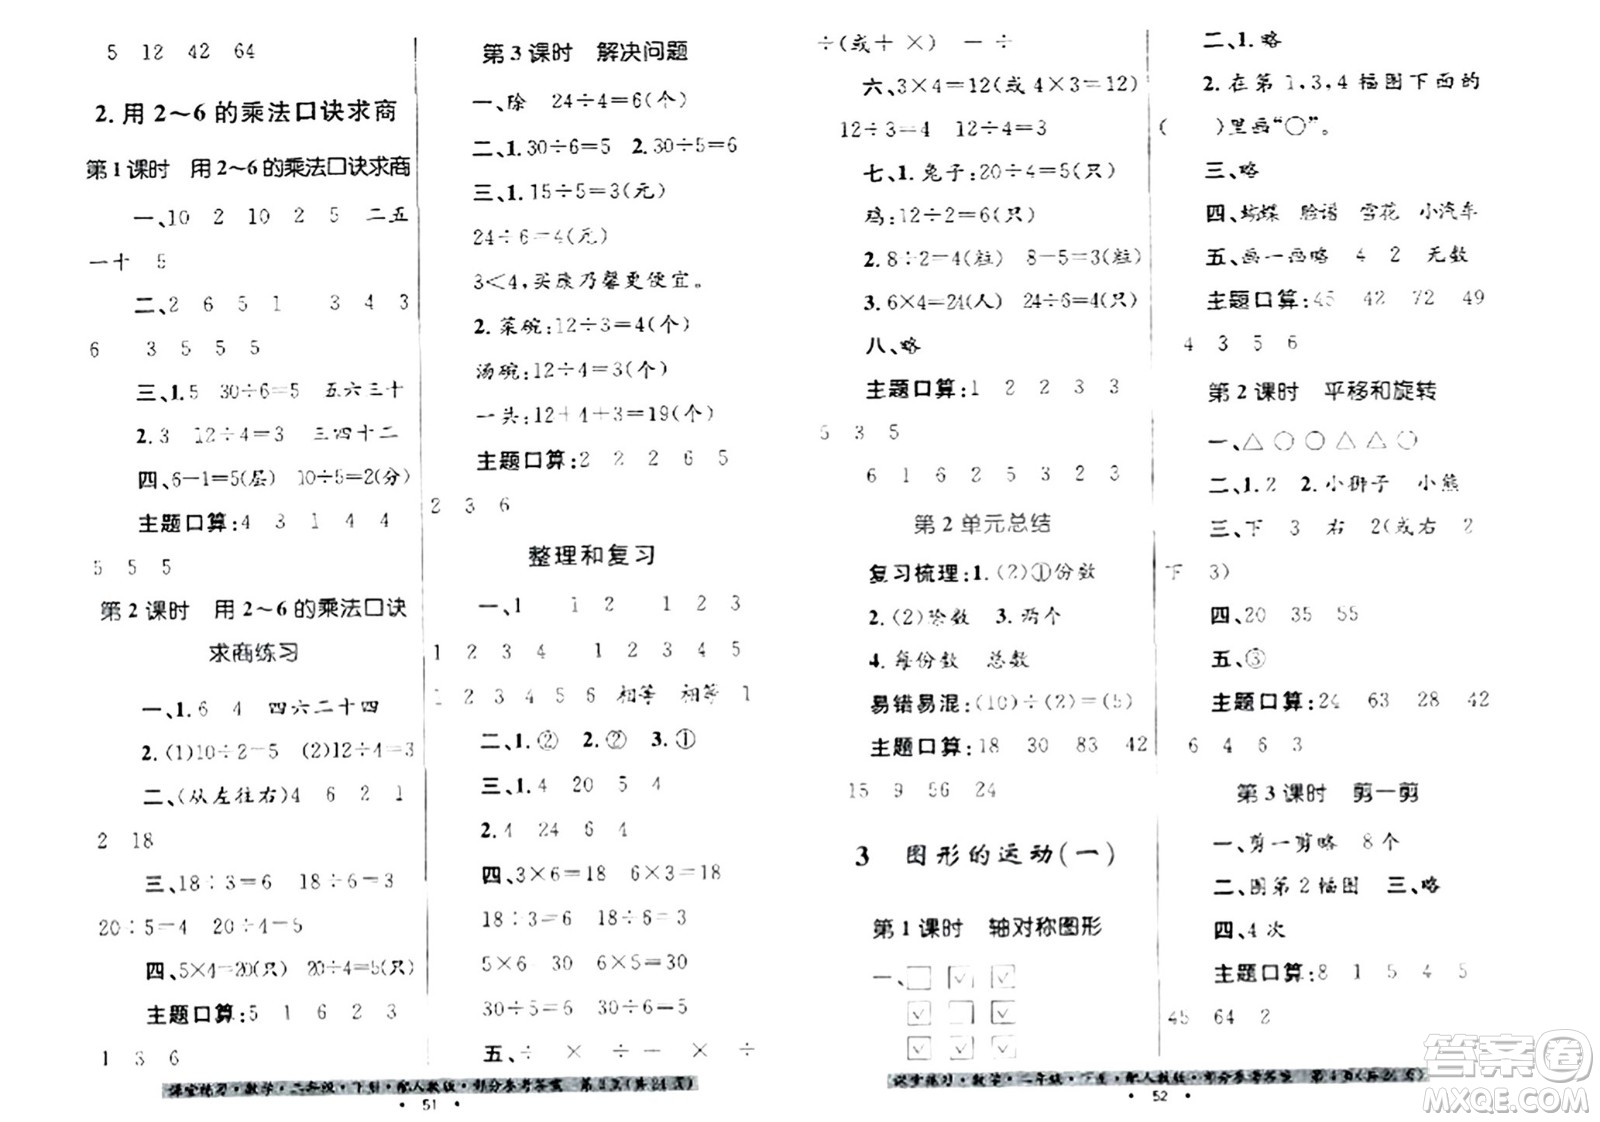 5 12 42 64
2.用2～6的乘法口诀求商
第1课时 用2～6的乘法口诀求商
一、10 2 10 2 5 二五
一十 5
二、2 6 5 1 3 4 3
6 3 5 5 5
三、1.5 30÷6=5 五六三十
2.3 12÷4=3 三四十二
四、6-1=5(层) 10÷5=2(分)
主题口算:4 3 1 4 4
5 5 5
第2课时 用2～6的乘法口诀
求商练习
一、1.6 4 四六二十四
2.(1)10÷2=5 (2)12÷4=3
二、(从左往右)4 6 2 1
2 18
三、18÷3=6 18÷6=3
20÷5=4 20÷4=5
四、5×4=20(只) 20÷4=5(只)
主题口算:5 1 6 2 3
1 3 6
第3课时 解决问题
一、除 24÷4=6(个)
二、1.30÷6=5 2.30÷5=6
三、1.15÷5=3(元)
24÷6=4(元)
3<4,买康乃馨更便宜。
2.菜碗:12÷3=4(个)
汤碗:12÷4=3(个)
一共:12+4+3=19(个)
主题口算:2 2 2 6 5
2 3 6
整理和复习
一、1 1 2 1 2 3
1 2 3 4 1 2 3 4 5
1 2 3 4 5 6 相等 相等 1
二、1.② 2.② 3.①
三、1.4 20 5 4
2.4 24 6 4
四、3×6=18 6×3=18
18÷3=6 18÷6=3
5×6 30 6×5=30
30÷5=6 30÷6=5
五、÷ × ÷ - × ÷
课堂练习·数学·二年级·下册·配人教版·部分参考答案 第3页(共24页)
• 51 •
÷(或+ ×) - ÷
六、3×4=12(或4×3=12)
12÷3=4 12÷4=3
七、1.兔子:20÷4=5(只)
鸡:12÷2=6(只)
2.8÷2=4(粒) 8-5=3(粒)
3.6×4=24(人) 24÷6=4(只)
八、略
主题口算:1 2 2 3 3
5 3 5
6 1 6 2 5 3 2 3
第2单元总结
复习梳理:1.(2)①份数
2.(2)除数 3.两个
4.每份数 总数
易错易混:(10)÷(2)=(5)
主题口算:18 30 83 42
15 9 56 24
3 图形的运动(一)
第1课时 轴对称图形
一、□ ☑ ☑
☑ □ ☑
☑ ☑ ☑
二、1.略
2.在第1,3,4幅图下面的
( )里画“○”。
三、略
四、蝴蝶 脸谱 雪花 小汽车
五、画一画略 4 2 无数
主题口算:45 42 72 49
4 3 5 6
第2课时 平移和旋转
一、△ ○ ○ △ △ ○
二、1.2 2.小狮子 小熊
三、下 3 右 2(或右 2
下 3)
四、20 35 55
五、③
主题口算:24 63 28 42
6 4 6 3
第3课时 剪一剪
一、剪一剪略 8个
二、圈第2幅图 三、略
四、4次
主题口算:8 1 5 4 5
45 64 2
课堂练习·数学·二年级·下册·配人教版·部分参考答案 第4页(共24页)
• 52 •
答案圈
MXQE.COM